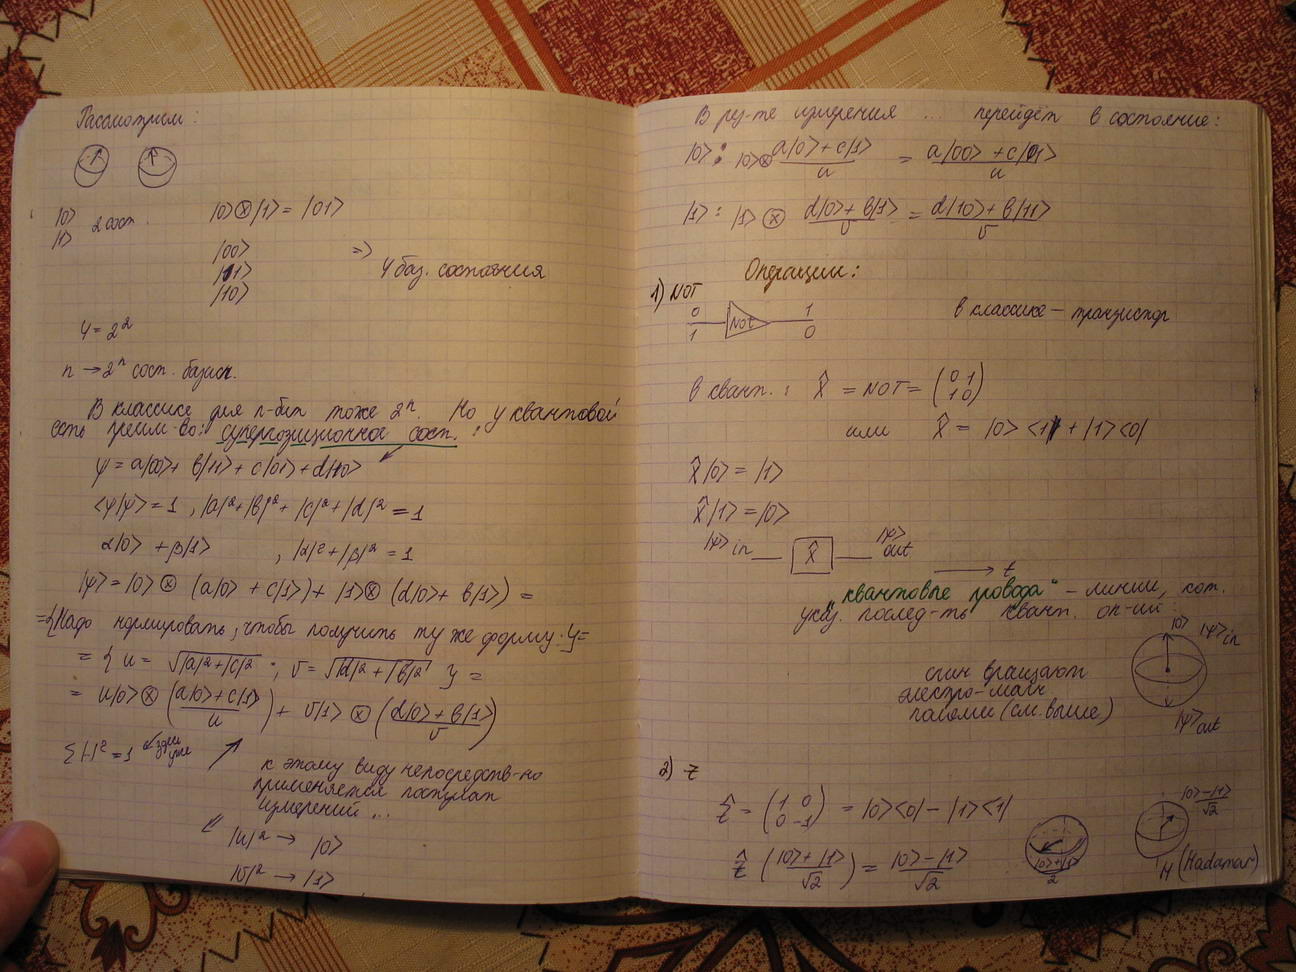 Рассмотрим:
|0⟩
|1⟩
2 сост.
|0⟩⊗|1⟩ = |01⟩
|00⟩
|11⟩
|10⟩
=> 4 баз. состояния
4 = 2²
n → 2ⁿ сост. базисн.
В классике для n-бит тоже 2ⁿ. Но у квантовой
есть преим-во: суперпозиционное сост.:
ψ = a|00⟩ + b|11⟩ + c|01⟩ + d|10⟩
⟨ψ|ψ⟩ = 1 , |a|² + |b|² + |c|² + |d|² = 1
α|0⟩ + β|1⟩ , |α|² + |β|² = 1
|ψ⟩ = |0⟩ ⊗ (a|0⟩ + c|1⟩) + |1⟩ ⊗ (d|0⟩ + b|1⟩) =
= {Надо нормировать, чтобы получить ту же форму:} =
= { u = √(|a|² + |c|²) ; v = √(|d|² + |b|²) } =
= u|0⟩ ⊗ ((a|0⟩ + c|1⟩)/u) + v|1⟩ ⊗ ((d|0⟩ + b|1⟩)/v)
Σ|·|² = 1 здесь уже
к этому виду непосредств-но
применяется постулат
измерений ...
|u|² → |0⟩
|v|² → |1⟩
В рез-те измерения ... перейдём в состояние:
|0⟩: |0⟩⊗ (a|0⟩ + c|1⟩)/u = (a|00⟩ + c|01⟩)/u
|1⟩: |1⟩ ⊗ (d|0⟩ + b|1⟩)/v = (d|10⟩ + b|11⟩)/v
Операции:
1) NOT
0 1
Not
1 0
в классике – транзистор
в квант.: X̂ = NOT = (0 1
1 0)
или X̂ = |0⟩⟨1| + |1⟩⟨0|
X̂|0⟩ = |1⟩
X̂|1⟩ = |0⟩
|ψ⟩in X̂ |ψ⟩out
t
„квантовые провода“ – линии, кот.
указ. послед-ть квант. оп-ий:
|0⟩ |ψ⟩in
спин вращают
электро-магн
полями (см. выше)
|ψ⟩out
2) Z
Ẑ = (1 0
0 -1) = |0⟩⟨0| − |1⟩⟨1|
Ẑ ((|0⟩ + |1⟩)/√2) = (|0⟩ − |1⟩)/√2
(|0⟩+|1⟩)/2
(|0⟩−|1⟩)/√2
H (Hadamar)